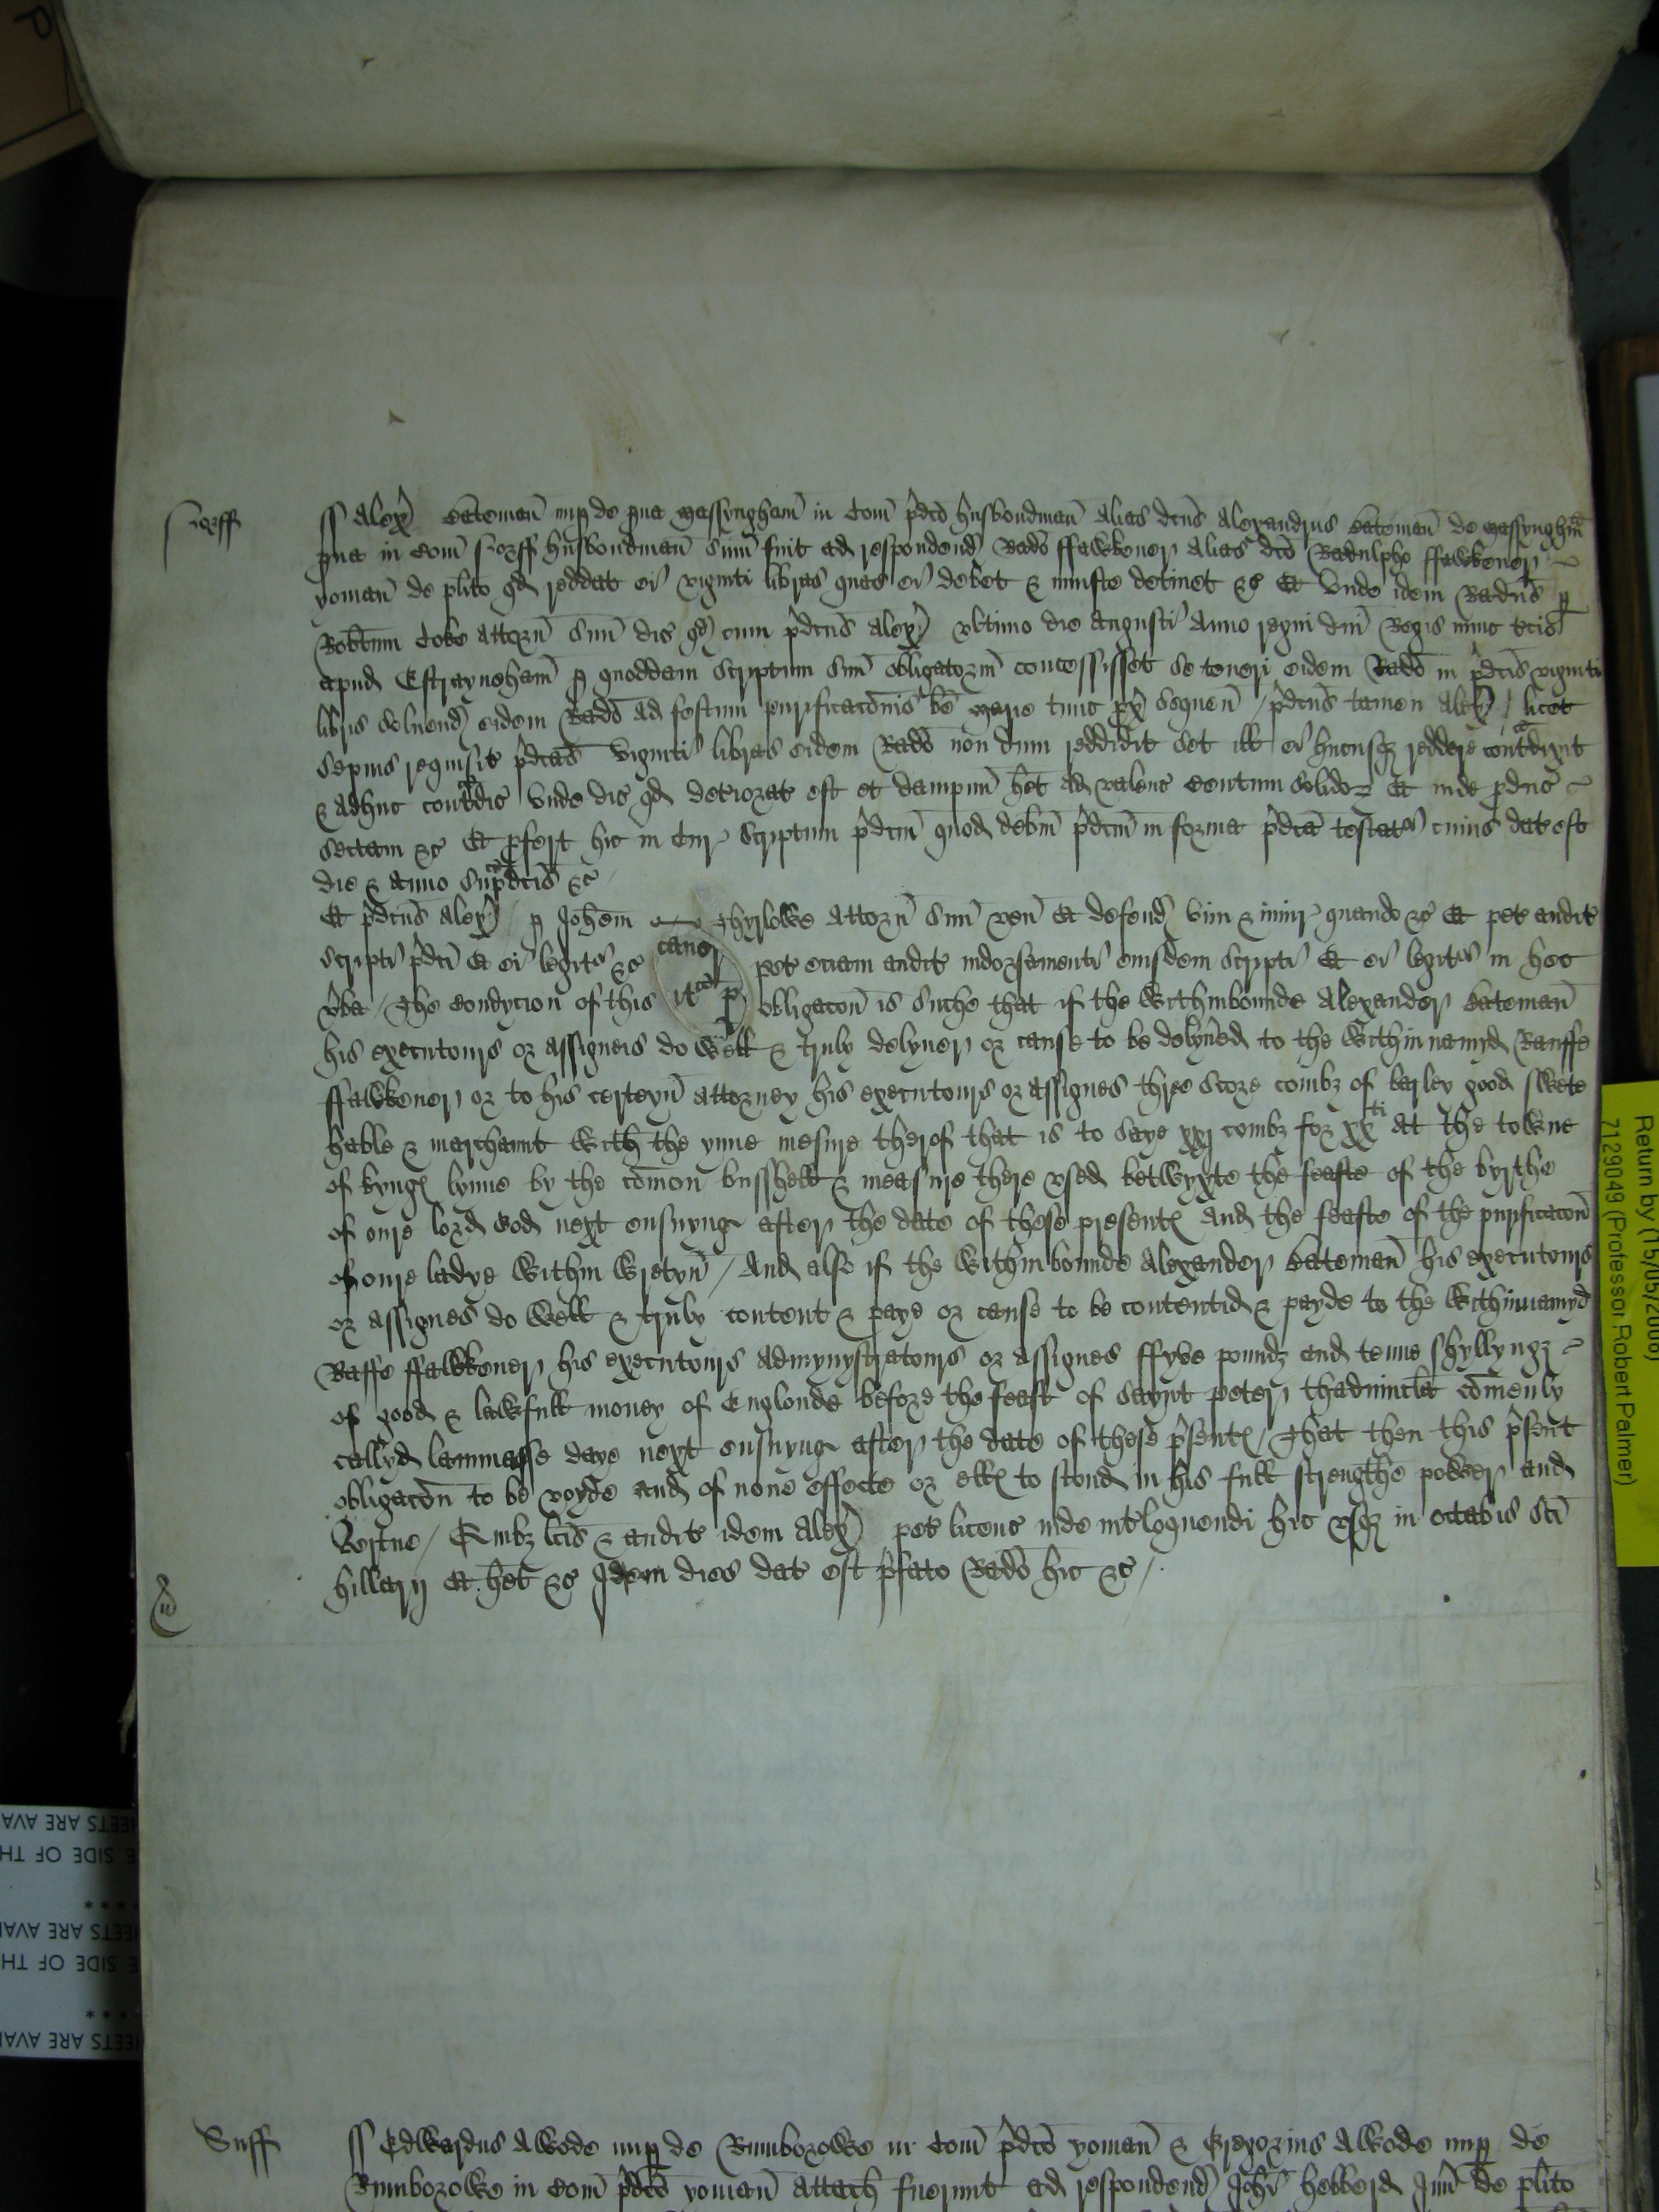 Norff
ss Alexr Bateman nup de pua Massyngham in Com pdco husbondman alias dcus Alexandrus Bateman de Massyngham
pua in Com Norff husbondman sum fuit ad respondend Rado ffawkener alias dco Radulpho ffawkener
yoman de plito qd reddat ei viginti libras quas ei debet & iniuste detinet &c Et unde idem Radus p
Robtum Coke attorn suu dic qd cum pdcus Alexr ultimo die Augusti Anno regni dni Regis nunc
apud Estrayneham p quoddam scriptum suu obligatorm concessisset se teneri eidem Rado in pdcis viginti
libris solvend eidem Rado ad festum purificaconis be Marie tunc px sequen / pdcus tamen Alexr / licet
sepius requisit pdcas viginti libras eidem Rado non dum reddidit set ill ei hucusqz reddere contadixit
& adhuc contadic Unde dic qd deteriorat est et dampnu het ad valenc Centum solidoz Et inde pduc
sectam &c Et pfert hic in Cur scriptum pdcm quod debm pdcm in forma pdca testatr cuius dat est
die & anno supadcis &c
Et pdcus Alexr / p Johem Thyrlowe attorn suu ven Et defend vim & iniur quando &c Et pet audit
scripti pdci Et ei legitr &c pet eciam audit indorsamenti eiusdem scripti Et ei legitr in hec
vba / The Condycion of this obligacon is suche that if the withinbounde Alexander Bateman
his executours or assigneis do well & truly delyuer or cause to be delyued to the within namyd Rauffe
ffawkener or to his certeyn attorney his executours or assignes thre score combz of barley good swete
hable & marchaunt with the ynne mesure therof that is to saye xxj combz for xxti At the towne
of kynges lynne by the comon busshell & measure there vsed betwyxte the feaste of the byrthe
of oure lord God next ensuyng after the date of these presentes And the feaste of the purificacon
of oure ladye within wretyn / And also if the withinbounde Alexander Bateman his executours
or assignes do well & truly content & paye or cause to be contentid & payde to the withinnamyd
Raffe ffawkener his executours admynystratours or assignes ffyve poundz and tenne shyllyngz
of good & lawfull money of Englonde before the feast of Saynt peter thadvincla comenly
callyd lammasse daye next ensuyng after the date of these psentes / That then this psent
obligacon to be voyde and of none effecte or elles to stond in his full strengthe power and
vertue / Quibz lcis & audit idem Alexr pet licenc inde intloquendi hic vsqz in octabis sci
hillarij Et het &c Idem dies dat est pfato Rado hic &c /
Suff
ss Edwardus Awode nup de Rumborowe in Com pdco yoman & Gregorius Awode nup de
Rumborowe in Com pdco yoman attach fuerunt ad respondend Johi hebberd Juni de plito
Return by (15/05/2006)
7129049 (Professor Robert Palmer)
EETS ARE AVA
E SIDE OF TH
****
EETS ARE AVA
E SIDE OF TH
****
EETS ARE AVA